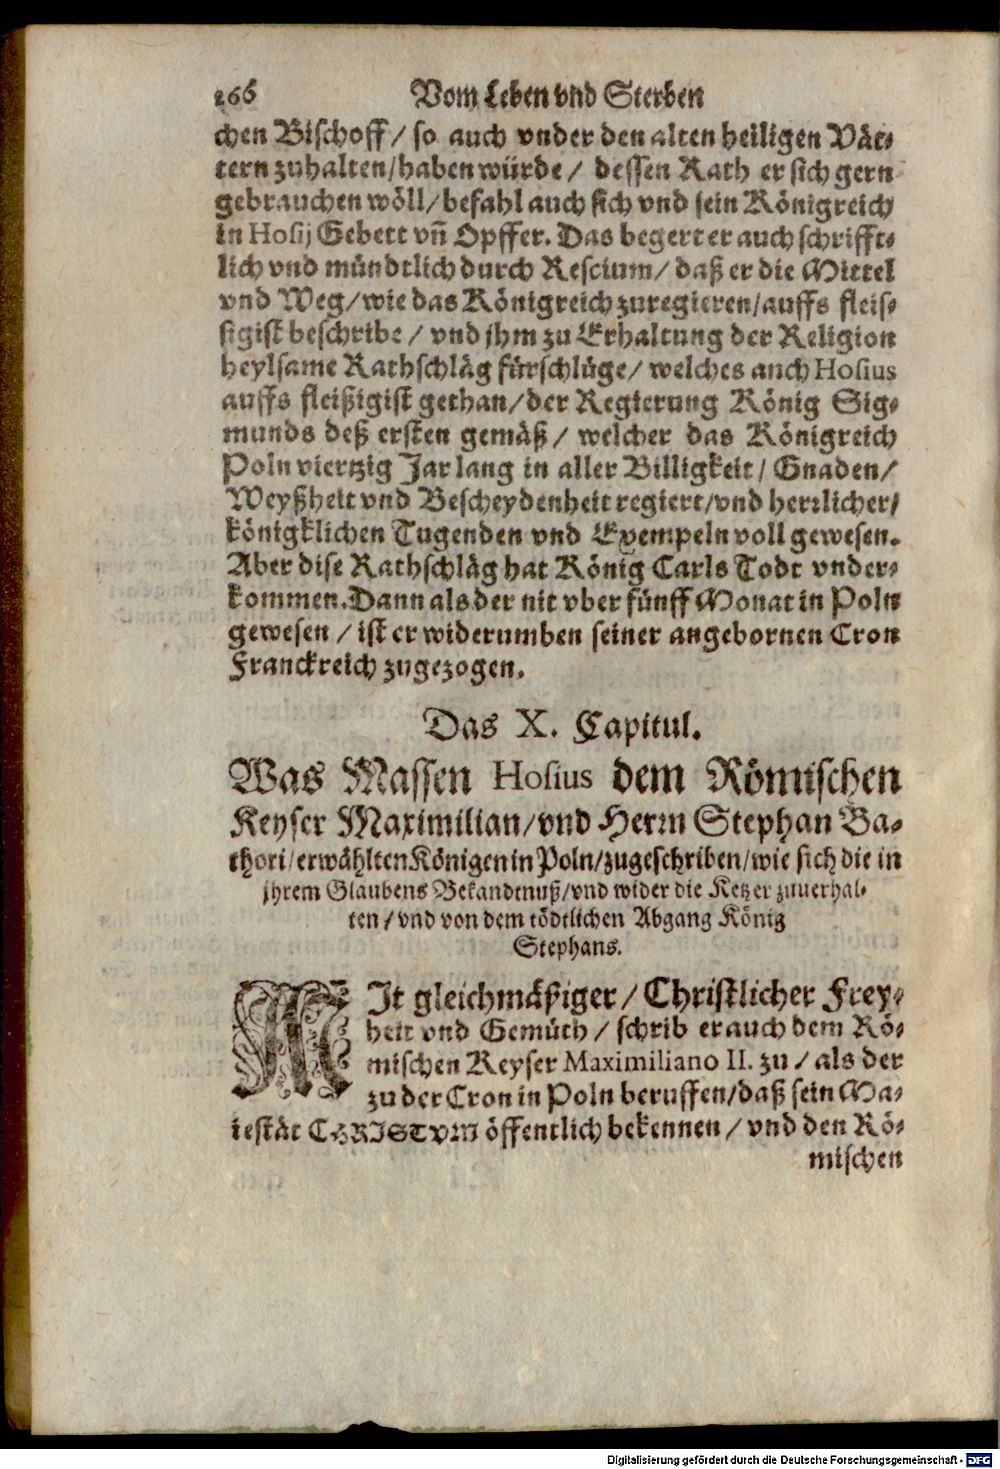 266 Vom Leben vnd Sterben
chen Bischoff / so auch vnder den alten heiligen Vät-
tern zuhalten/haben würde / dessen Rath er sich gern
gebrauchen wöll/befahl auch sich vnd sein Königreich
in Hosij Gebett vñ Opffer. Das begert er auch schrifft-
lich vnd mündtlich durch Rescium/ daß er die Mittel
vnd Weg/wie das Königreich zuregieren/auffs fleis-
sigist beschribe / vnd jhm zu Erhaltung der Religion
heylsame Rathschläg fürschlüge/ welches auch Hosius
auffs fleißigist gethan/der Regierung König Sig-
munds deß ersten gemäß/ welcher das Königreich
Poln viertzig Jar lang in aller Billigkeit/ Gnaden/
Weyßheit vnd Bescheydenheit regiert/vnd herrlicher/
königklichen Tugenden vnd Exempeln voll gewesen.
Aber dise Rathschläg hat König Carls Todt vnder-
kommen. Dann als der nit vber fünff Monat in Poln
gewesen / ist er widerumben seiner angebornen Cron
Franckreich zugezogen.
Das X. Capitul.
Was Massen Hosius dem Römischen
Keyser Maximilian/vnd Herrn Stephan Ba-
thori/erwählten Königen in Poln/zugeschriben/wie sich die in
jhrem Glaubens Bekandtnuß/vnd wider die Ketzer zuuerhal-
ten / vnd von dem tödtlichen Abgang König
Stephans.
MIt gleichmäßiger / Christlicher Frey-
heit vnd Gemüth / schrib er auch dem Rö-
mischen Keyser Maximiliano II. zu / als der
zu der Cron in Poln beruffen/daß sein Ma-
iestät CHRISTVM öffentlich bekennen / vnd den Rö-
mischen
Digitalisierung gefördert durch die Deutsche Forschungsgemeinschaft - DFG